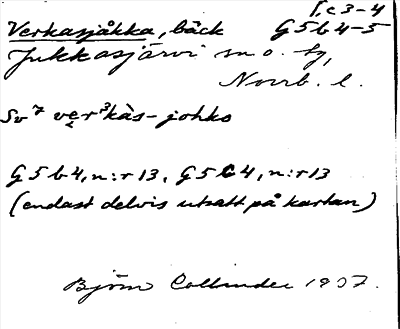 I, c 3-4
Verkasjåkka, bäck G 5 b 4-5
Jukkasjärvi sn o. tg,
Norrb. l.
Sv 7 vẹr³kàs-johko
G 5 b 4, n:r 13, G 5 C 4, n:r 13
(endast delvis utsatt på kartan)
Björn Collinder 1937.